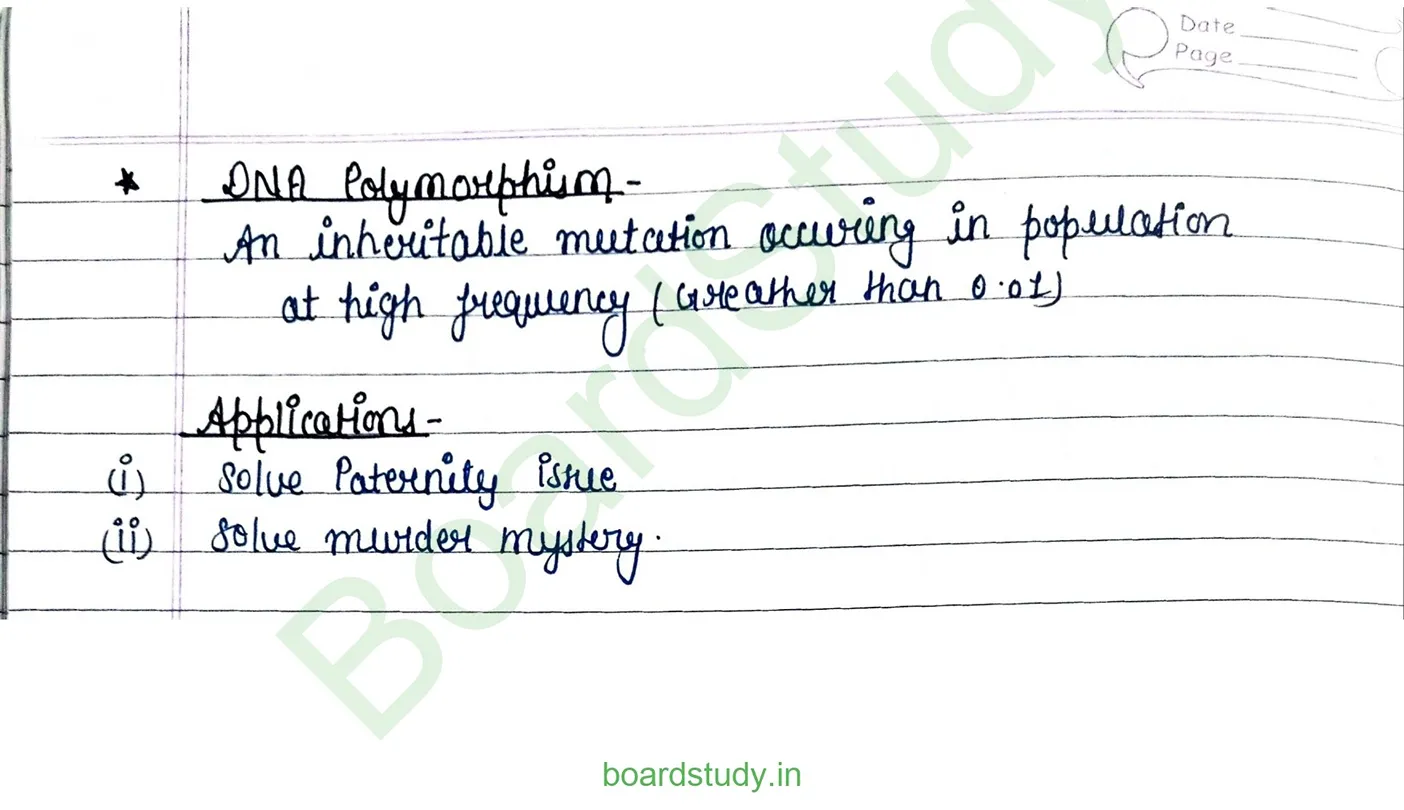 Date
Page
* DNA Polymorphism -
An inheritable mutation occuring in population
at high frequency (Greather than 0.01)
Applications -
(i) Solve Paternity issue
(ii) Solve murder mystery.
Boardstudy
boardstudy.in